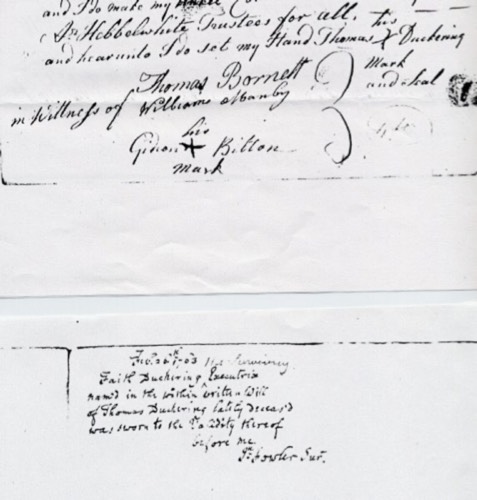 and I do make my
Jn Hebbelwhite Trustees for all,
and hearunto I do set my Hand Thomas X Duckering
his
Mark
and seal
in Wittness of
Thomas Bornett
William Manby
his
Gideon X Bilton
Mark
Faith Duckering Executrix
namd in the within writen Will
of Thomas Duckering lately deceasd
was sworn to the Validity thereof
before me
Fowler Surr.